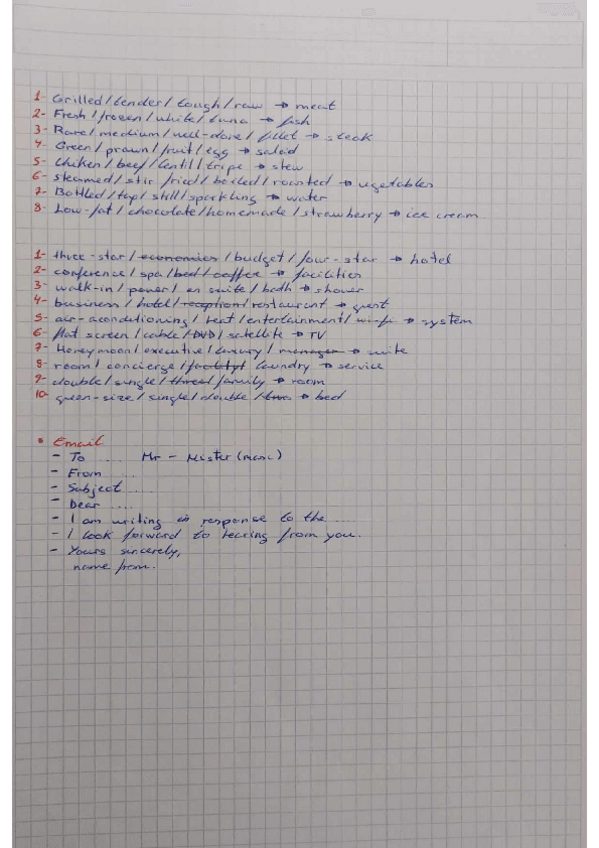 1- Grilled / tender / tough / raw → meat
2- Fresh / frozen / white / tuna → fish
3- Rare / medium / well-done / fillet → steak
4- Green / prawn / fruit / egg → salad
5- Chiken / beef / lentil / tripe → stew
6- steamed / stir fried / boiled / roasted → vegetables
7- Bottled / tap / still / sparkling → water
8- Low-fat / chocolate / homemade / strawberry → ice cream
1- three-star / economies / budget / four-star → hotel
2- conference / spa / bed / coffee → facilities
3- walk-in / power / en suite / bath → shower
4- business / hotel / reception / restaurant → guest
5- air-aconditioning / heat / entertainment / wi-fi → system
6- flat screen / cable / DVD / satellite → TV
7- Honeymoon / executive / luxury / manager → suite
8- room / concierge / laundry → service
9- double / single / threel family → room
10- queen-size / single / double / two → bed
• Email
- To ..... Mr - Mister (name)
- From ....
- Subject ....
- Dear ....
- I am writing in response to the ....
- I look forward to hearing from you.
- Yours sincerely,
name from.